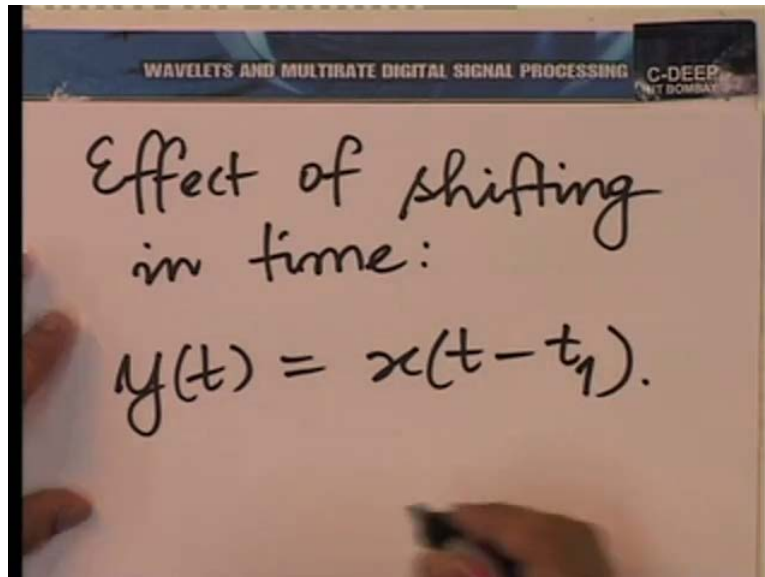 WAVELETS AND MULTIRATE DIGITAL SIGNAL PROCESSING
C-DEEP
IIT BOMBAY
Effect of shifting
in time:
y(t) = x(t-t₁).